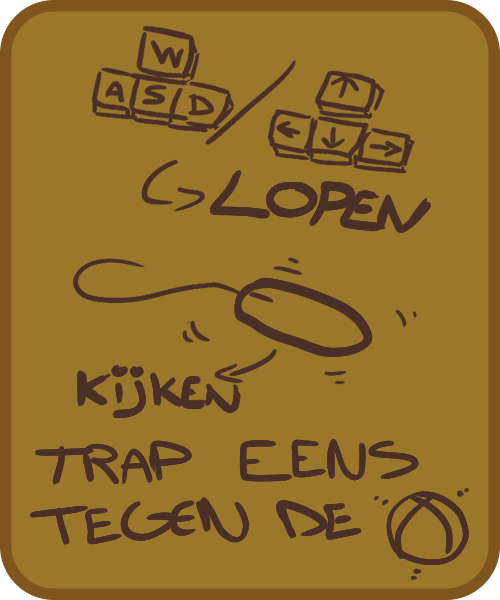 W
A S D / ↑
← ↓ →
LOPEN
KIJKEN
TRAP EENS
TEGEN DE